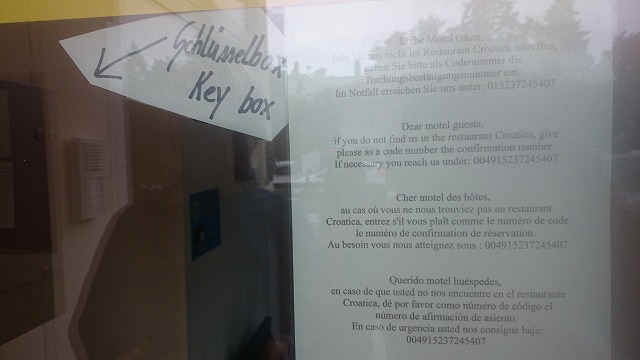 Schlüsselbox
Key box
Liebe Motel Gäste,
falls Sie uns nicht im Restaurant Croatica antreffen,
geben Sie bitte als Codenummer die
Buchungsbestätigungsnummer ein.
Im Notfall erreichen Sie uns unter: 015237245407
Dear motel guests,
if you do not find us in the restaurant Croatica, give
please as a code number the confirmation number.
If necessary you reach us under: 004915237245407
Cher motel des hôtes,
au cas où vous ne nous trouviez pas au restaurant
Croatica, entrez s'il vous plaît comme le numéro de code
le numéro de confirmation de réservation.
Au besoin vous nous atteignez sous : 004915237245407
Querido motel huéspedes,
en caso de que usted no nos encuentre en el restaurante
Croatica, dé por favor como número de código el
número de afirmación de asiento.
En caso de urgencia usted nos consigue bajo:
004915237245407